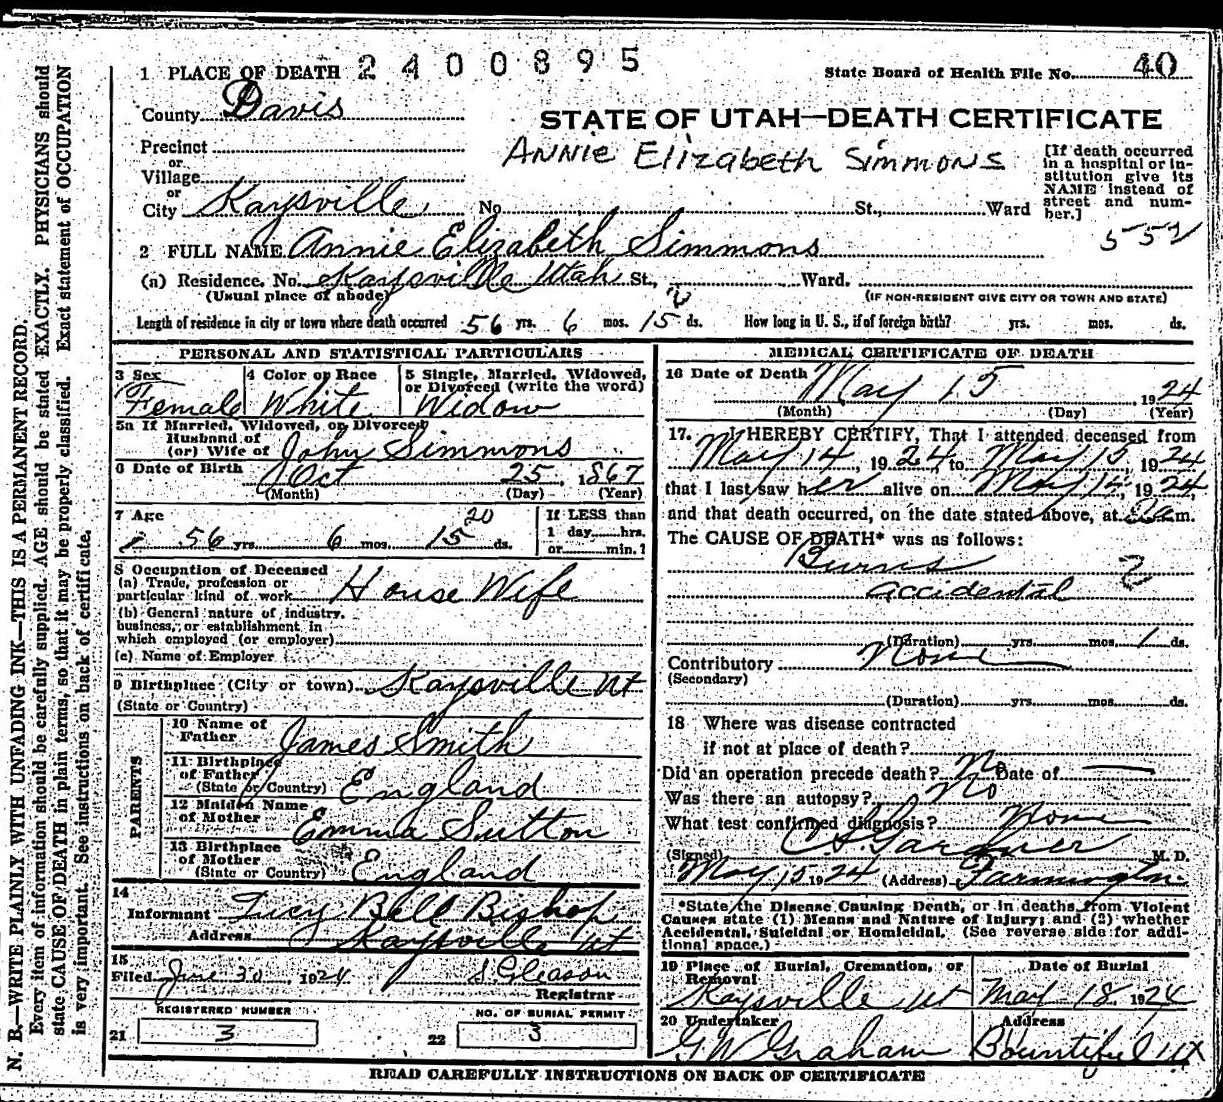 1 PLACE OF DEATH 2400895
State Board of Health File No. 40
County Davis
STATE OF UTAH—DEATH CERTIFICATE
Precinct
or
Village
or
City Kaysville No. St., Ward
ANNIE Elizabeth Simmons
[If death occurred
in a hospital or in-
stitution give its
NAME instead of
street and num-
ber.]
552
2 FULL NAME Annie Elizabeth Simmons
(a) Residence. No. Kaysville Utah St., Ward.
(Usual place of abode)
(IF NON-RESIDENT GIVE CITY OR TOWN AND STATE)
Length of residence in city or town where death occurred 56 yrs. 6 mos. 15 ds. How long in U. S., if of foreign birth? yrs. mos. ds.
PERSONAL AND STATISTICAL PARTICULARS
3 Sex
Female
4 Color or Race
White
5 Single, Married, Widowed,
or Divorced (write the word)
Widow
5a If Married, Widowed, or Divorced
Husband of
(or) Wife of John Simmons
6 Date of Birth Oct 25, 1867
(Month) (Day) (Year)
7 Age
20
56 yrs. 6 mos. 15 ds.
If LESS than
1 day hrs.
or min.?
8 Occupation of Deceased
(a) Trade, profession or
particular kind of work House Wife
(b) General nature of industry.
business, or establishment in
which employed (or employer)
(c) Name of Employer
9 Birthplace (City or town) Kaysville Ut
(State or Country)
PARENTS
10 Name of
Father James Smith
11 Birthplace
of Father
(State or Country) England
12 Maiden Name
of Mother Emma Sutton
13 Birthplace
of Mother
(State or Country) England
14
Informant Lucy Bell Bishop
Address Kaysville Ut
15
Filed June 30, 1924 S. Gleason
Registrar
REGISTERED NUMBER
21 3
NO. OF BURIAL PERMIT
22 3
MEDICAL CERTIFICATE OF DEATH
16 Date of Death May 15, 1924
(Month) (Day) (Year)
17. I HEREBY CERTIFY, That I attended deceased from
May 14, 1924, to May 15, 1924
that I last saw her alive on May 14, 1924,
and that death occurred, on the date stated above, at 2 a m.
The CAUSE OF DEATH* was as follows:
Burns
accidental
(Duration) yrs. mos. 1 ds.
Contributory None
(Secondary)
(Duration) yrs. mos. ds.
18 Where was disease contracted
if not at place of death?
Did an operation precede death? No Date of —
Was there an autopsy? No
What test confirmed diagnosis? None
(Signed) C S Gardner M. D.
May 15 1924 (Address) Farmington
*State the Disease Causing Death, or in deaths from Violent
Causes state (1) Means and Nature of Injury; and (2) whether
Accidental, Suicidal or Homicidal. (See reverse side for addi-
tional space.)
19 Place of Burial, Cremation, or
Removal
Kaysville Ut
Date of Burial
May 18 1924
20 Undertaker
G W Graham
Address
Bountiful Ut
READ CAREFULLY INSTRUCTIONS ON BACK OF CERTIFICATE
N. B.—WRITE PLAINLY WITH UNFADING INK—THIS IS A PERMANENT RECORD.
Every item of information should be carefully supplied. AGE should be stated EXACTLY. PHYSICIANS should
state CAUSE OF DEATH in plain terms, so that it may be properly classified. Exact statement of OCCUPATION
is very important. See instructions on back of certificate.